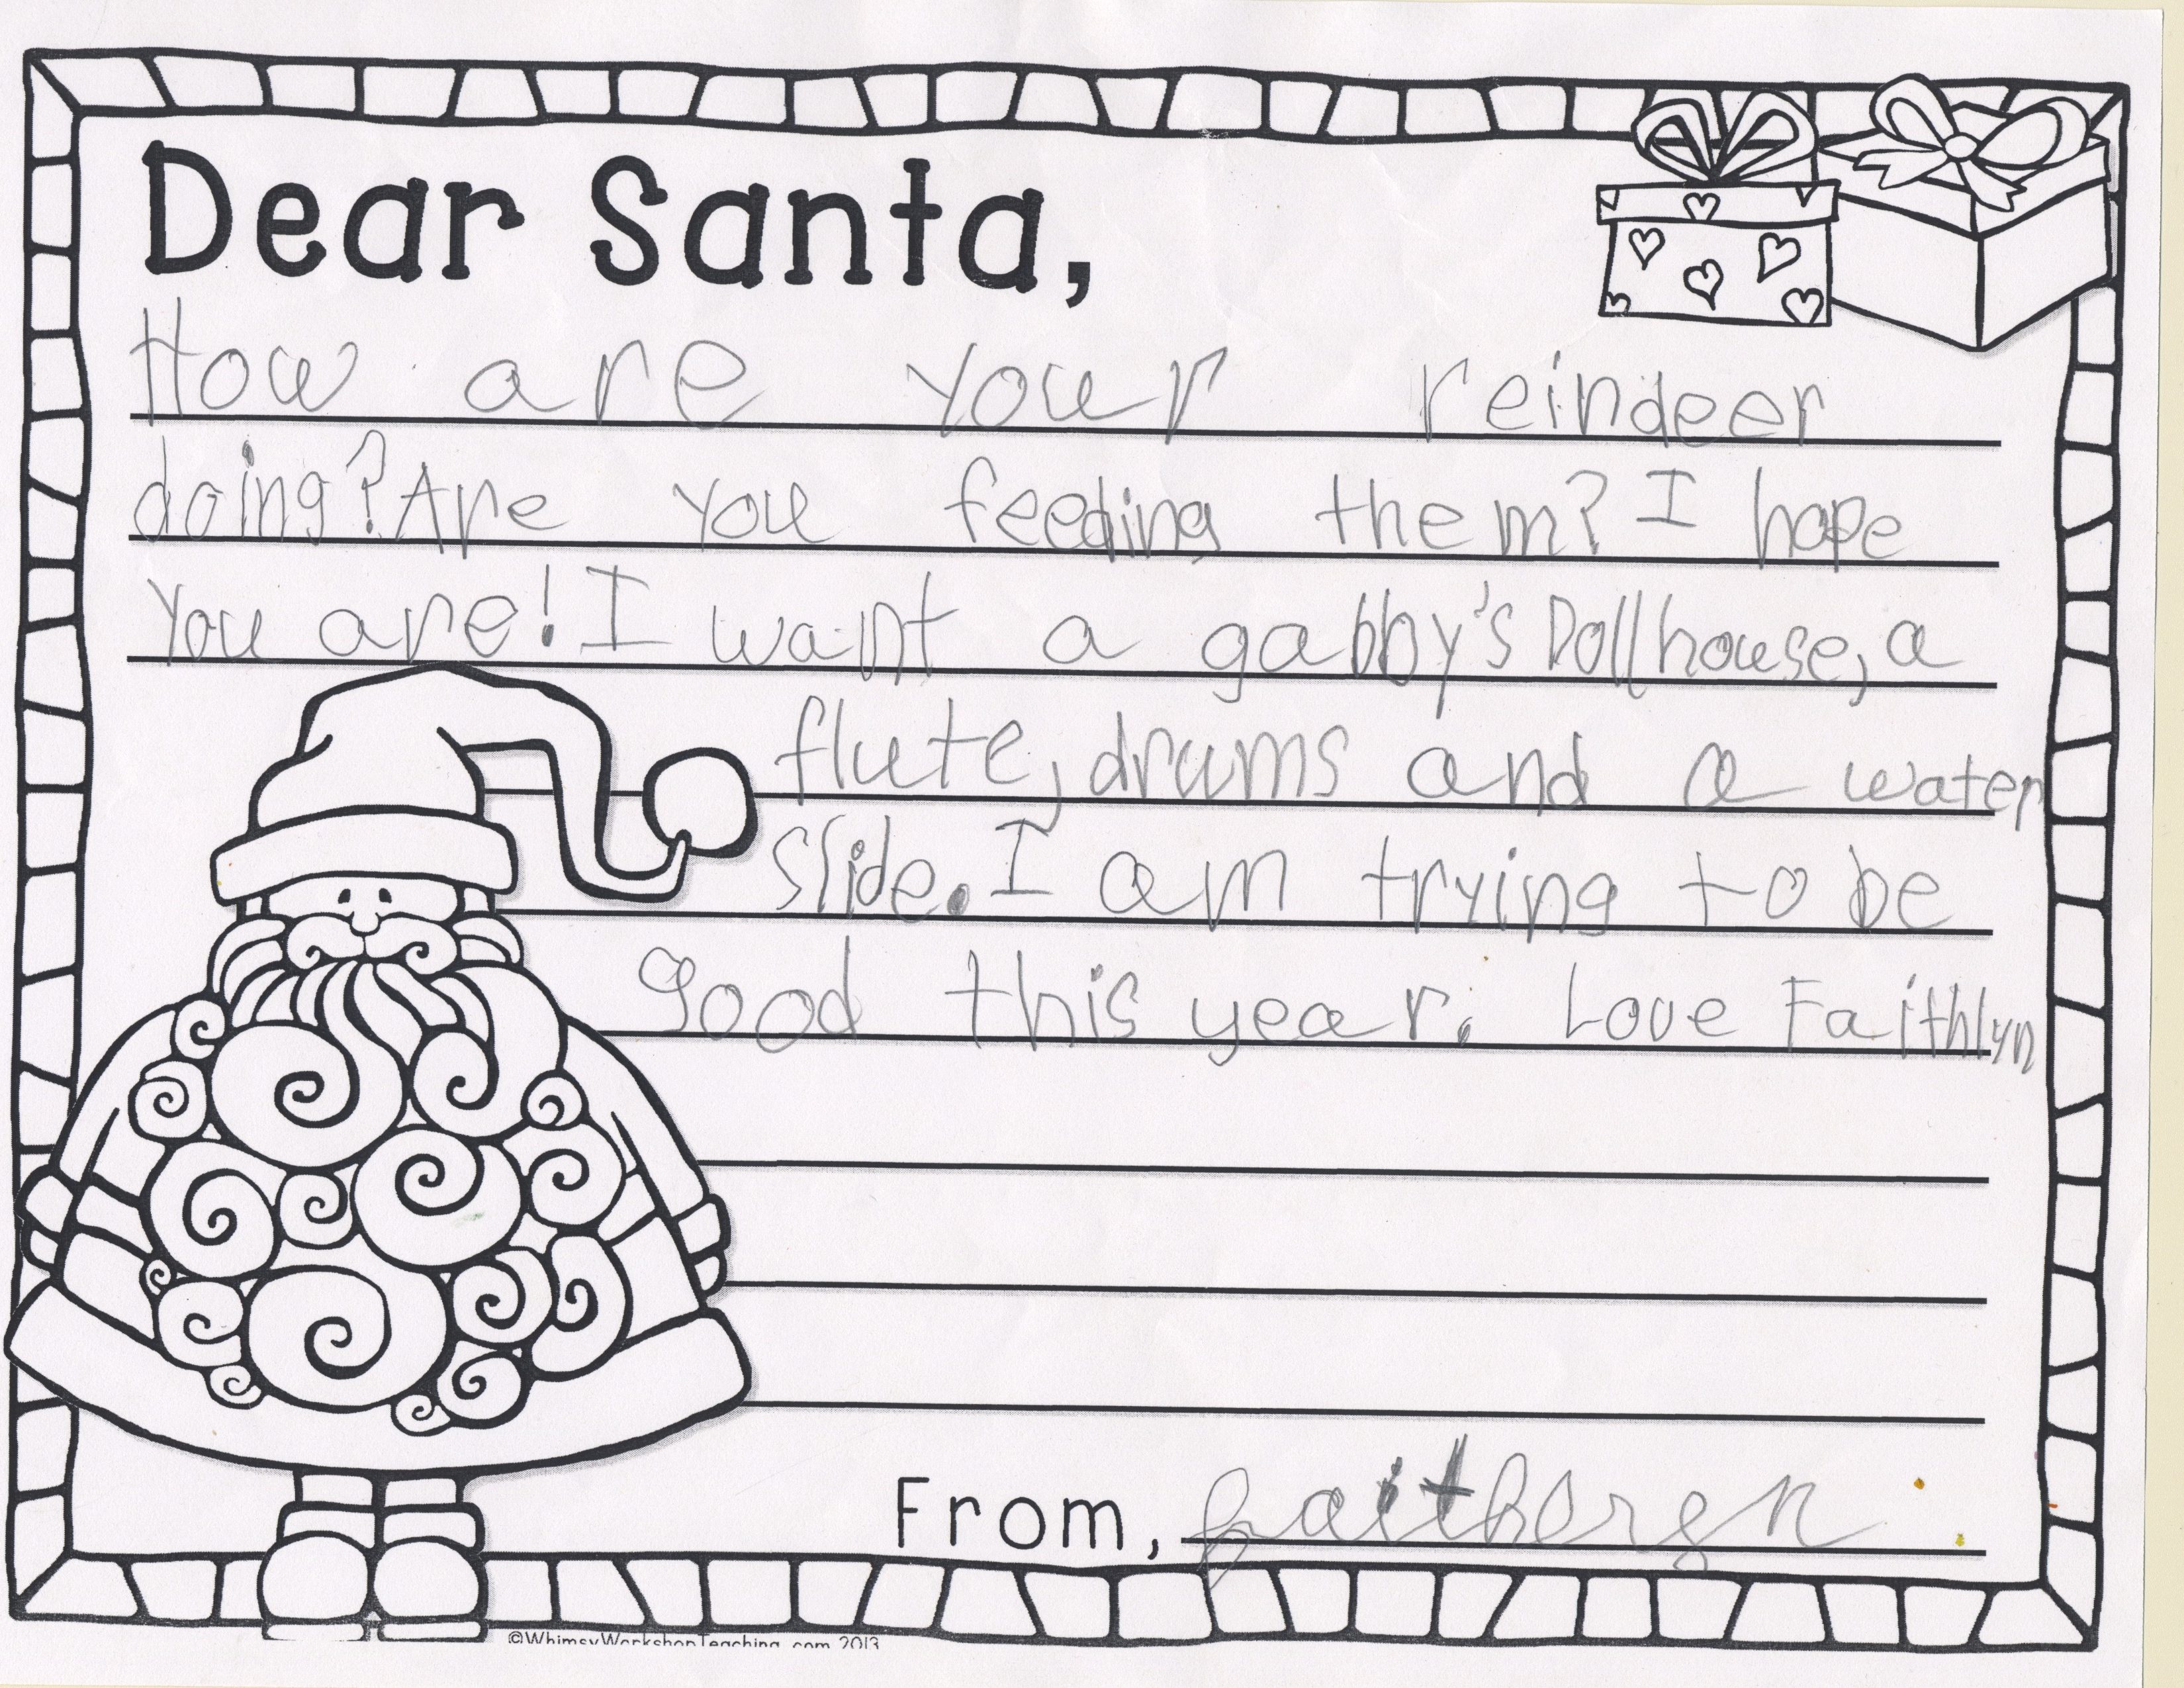 Dear Santa,
How are your reindeer
doing? Are you feeding them? I hope
you are! I want a gabby's Dollhouse, a
flute, drums and a water
slide. I am trying to be
good this year. Love Faithlyn
From,
©WhimsyWorkshopTeaching.com 2013